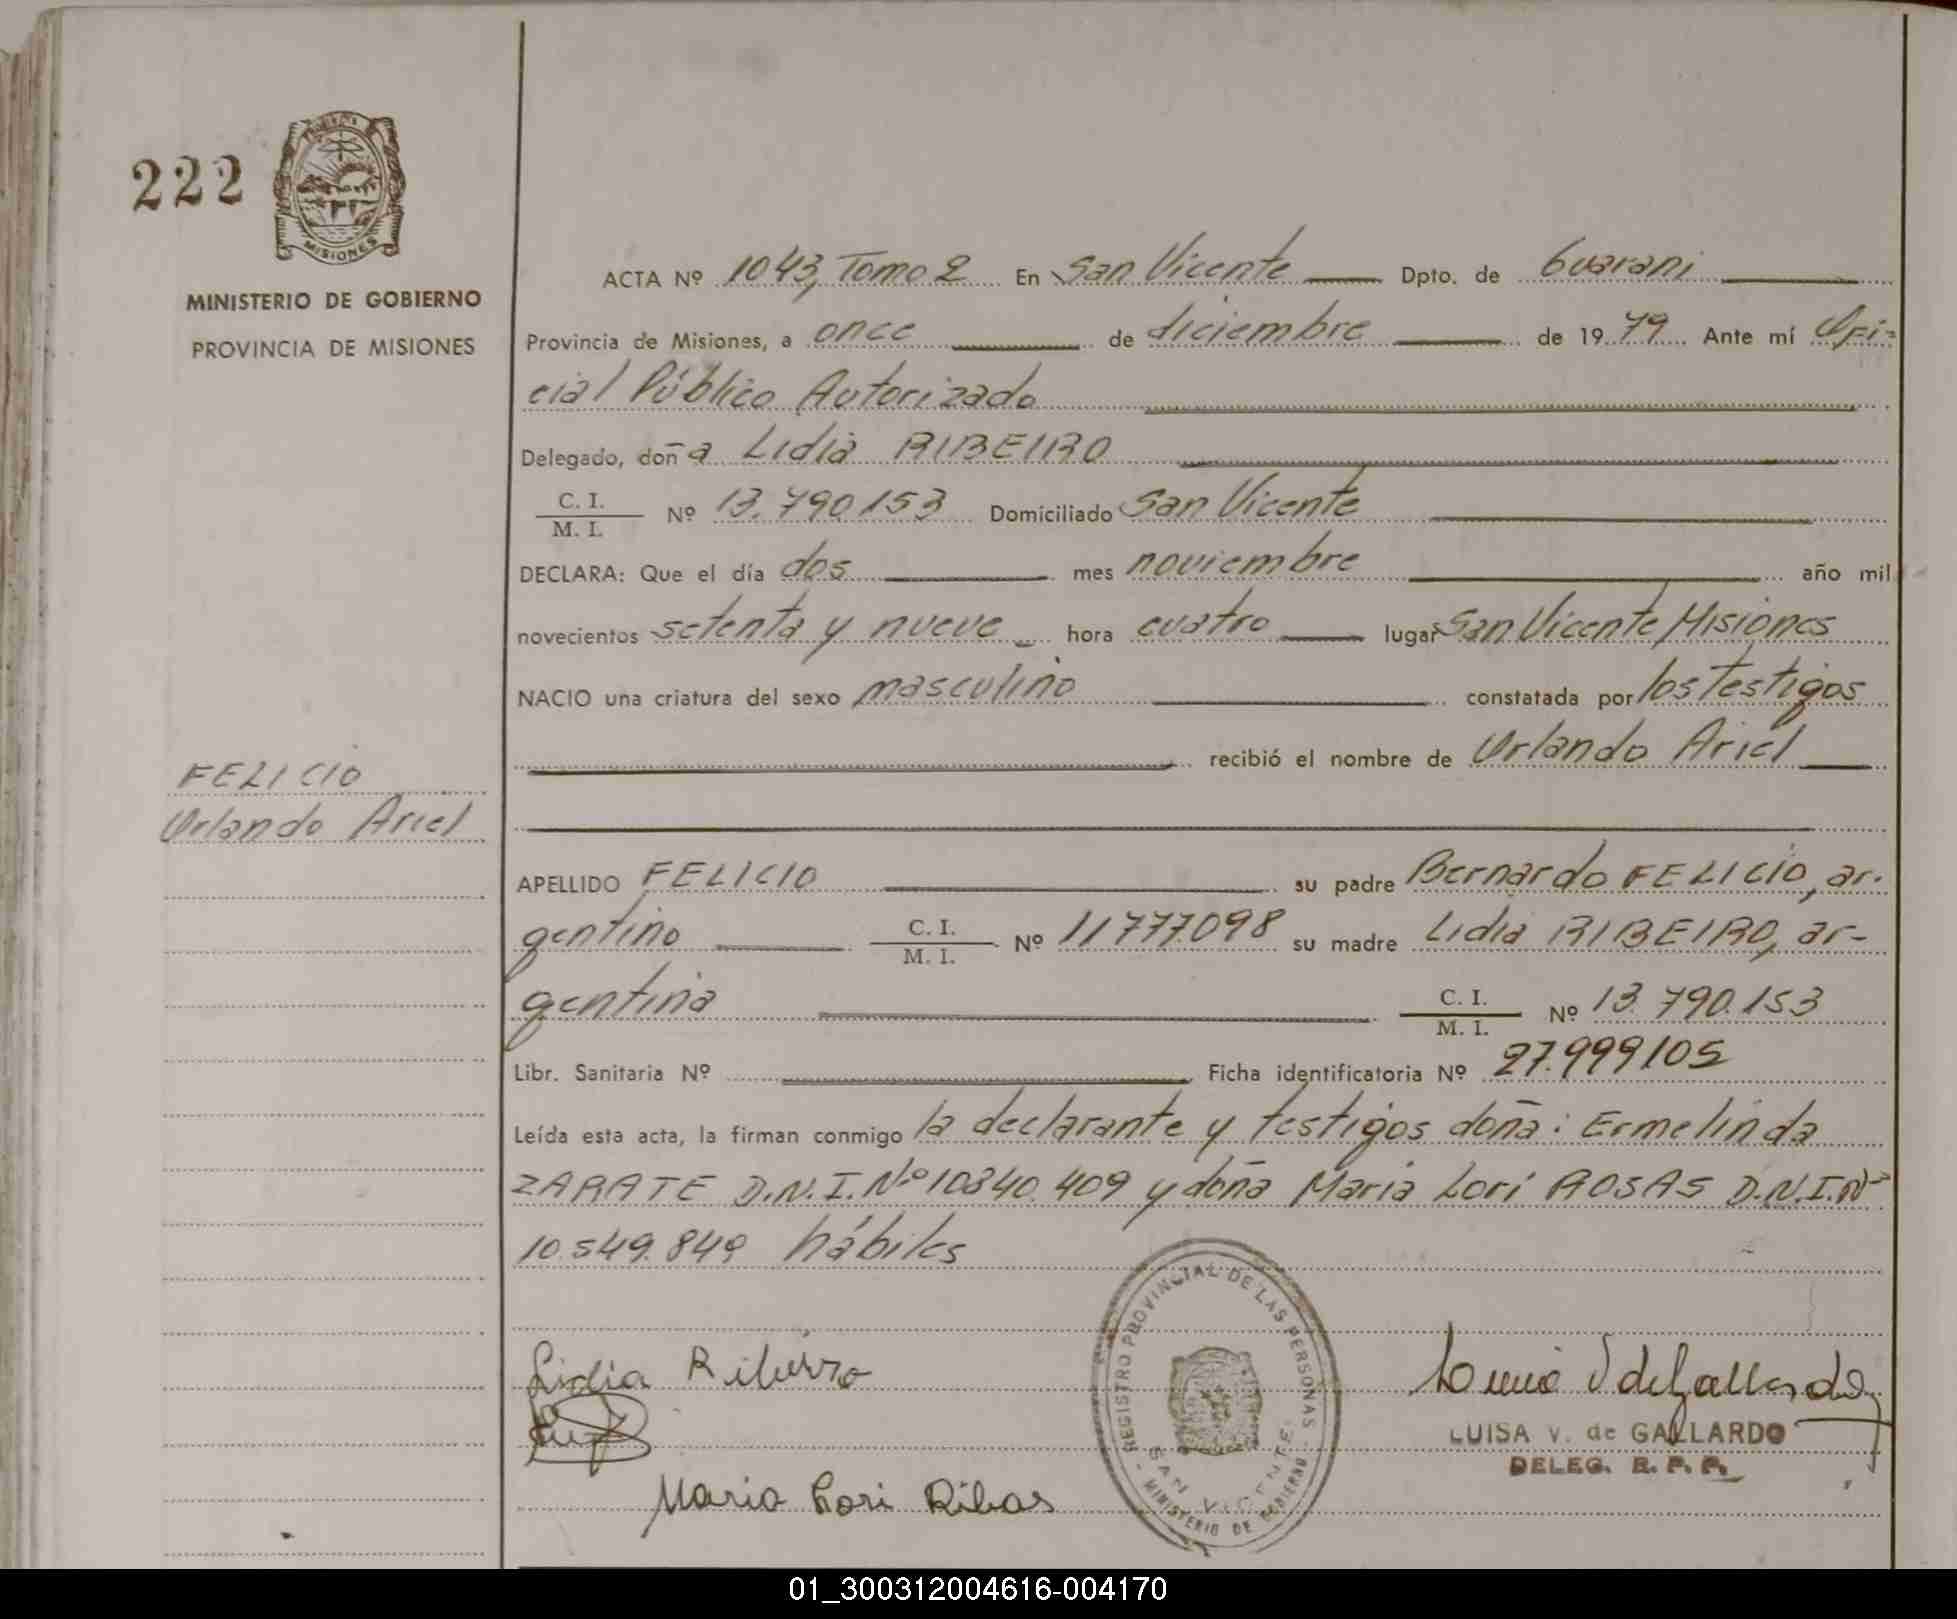 222
MISIONES
MINISTERIO DE GOBIERNO
PROVINCIA DE MISIONES
ACTA Nº 1043, Tomo 2 En San Vicente Dpto. de Guarani
Provincia de Misiones, a once de diciembre de 1979 Ante mí Ofi-
cial Público Autorizado
Delegado, doña Lidia RIBEIRO
C. I.
M. I.
Nº 13.790.153 Domiciliado San Vicente
DECLARA: Que el día dos mes noviembre año mil
novecientos setenta y nueve hora cuatro lugar San Vicente, Misiones
NACIO una criatura del sexo masculino constatada por los testigos
recibió el nombre de Orlando Ariel
FELICIO
Orlando Ariel
APELLIDO FELICIO su padre Bernardo FELICIO, ar-
gentino C. I. M. I. Nº 11777.098 su madre Lidia RIBEIRO, ar-
gentina C. I. M. I. Nº 13.790.153
Libr. Sanitaria Nº Ficha identificatoria Nº 27.999105
Leída esta acta, la firman conmigo la declarante y testigos doña: Ermelinda
ZARATE D.N.I.Nº 10.340.409 y doña Maria Lori ROSAS D.N.I.Nº
10.549.849 hábiles
Lidia Ribeiro
Maria Lori Ribas
REGISTRO PROVINCIAL DE LAS PERSONAS
SAN VICENTE
MINISTERIO DE GOBIERNO
LUISA V. de GALLARDO
DELEG. R. P. P.
01_300312004616-004170